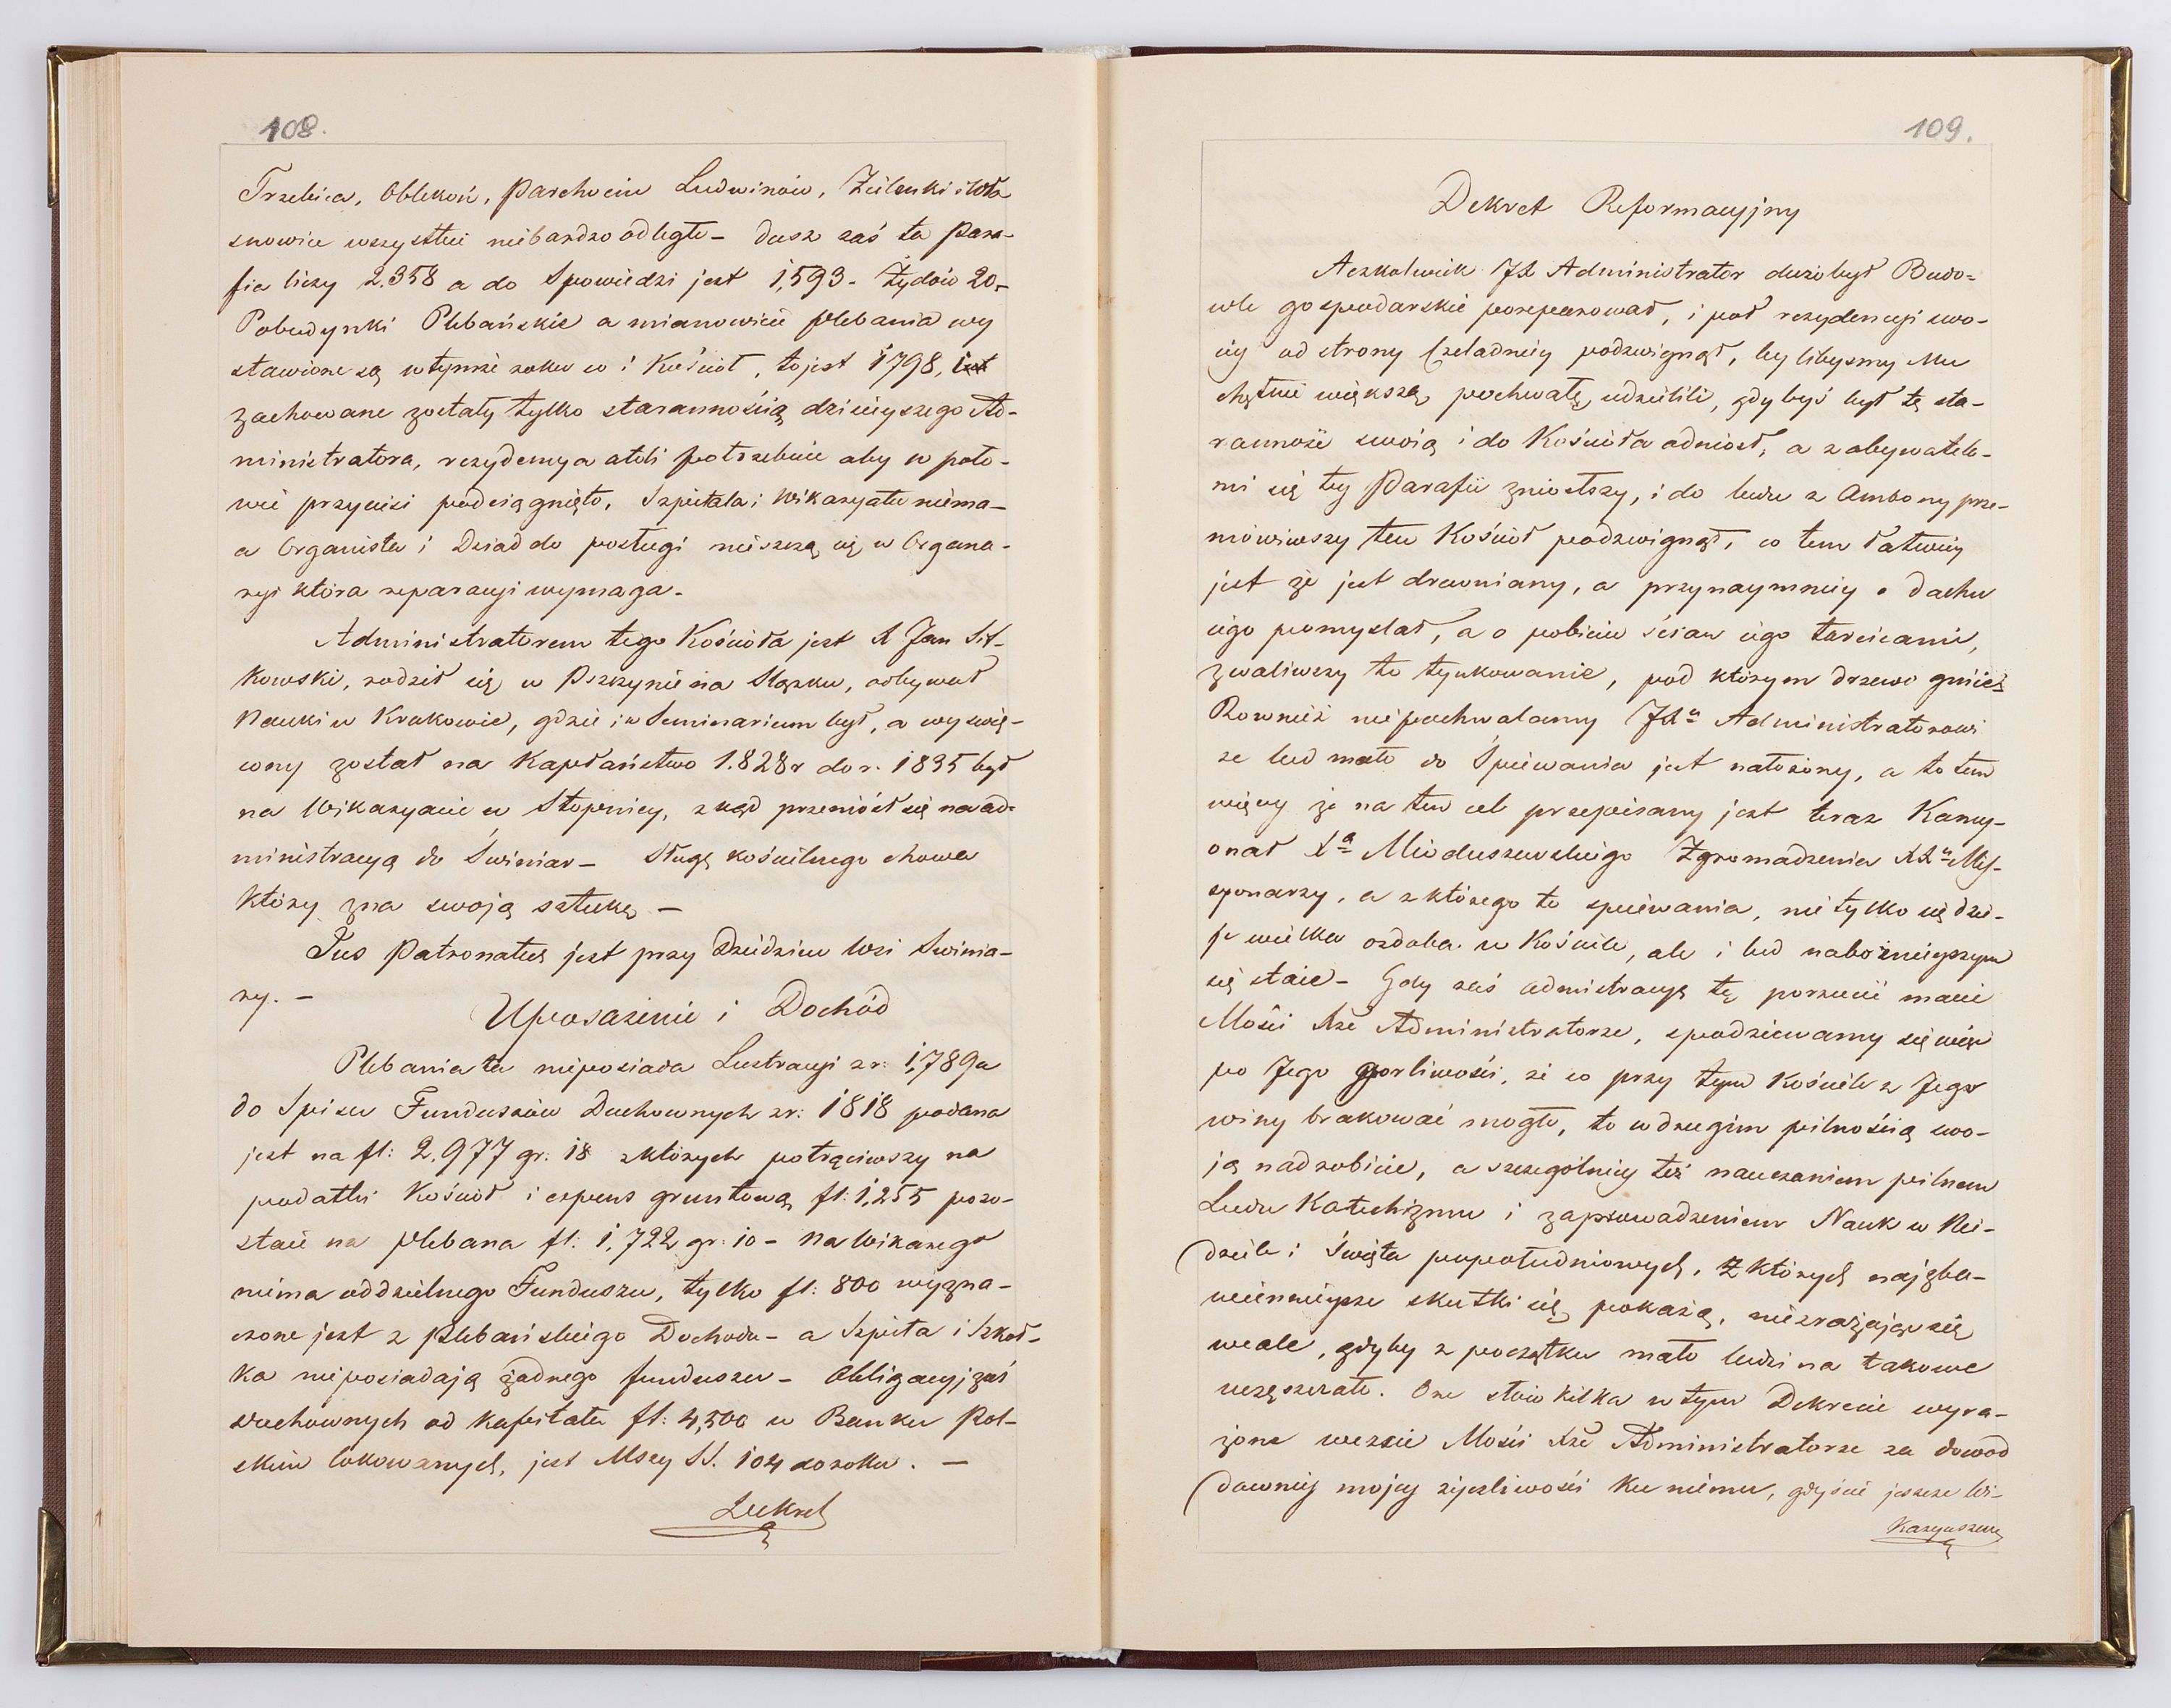 108.
Trzebica, Oblekoń, Parchocin Ludwinów, Zielonki i Wła
snowice wszystkie niebardzo odległe – dusz zaś ta Para-
fia liczy 2.358 a do Spowiedzi jest 1,593 – Żydów 20 –
Pobudynki Plebańskie a mianowicie plebania wy
stawione są w tymże roku co i Kościół, to jest 1798,
zachowane zostały tylko starannością dzisieyszego Ad-
ministratora, rezydencya atoli potrzebuie aby w poło-
wie przyciesi podciągnięto, Szpitala i Wikaryatu niema –
a Organista i Dziad do posługi mieszczą się w Organa-
ryi która reparacyi wymaga.
Administratorem tego Kościoła jest X Jan Sit-
kowski, rodził się w Pszczynie na Sląsku, odbywał
Nauki w Krakowie, gdzie i w Seminarium był, a wyswię-
cony został na Kapłaństwo 1.828 r do r. 1835 był
na Wikaryacie w Stopnicy, zkąd przeniósł się na ad-
ministracyą do Świniar – Sługę kościelnego chowa
który zna swoją sztukę –
Jus Patronatus jest przy Dziedzicu Wsi Swinia-
ry. –
Uposażenie i Dochód
Plebania ta nieposiada Lustracyi z r: 1,789 a
do Spisu Funduszów Duchownych z r: 1818 podana
jest na fl: 2,977 gr: 18 z których potrąciwszy na
podatki Kościół i expens gruntową fl: 1,255 pozo-
staie na plebana fl: 1,722 gr: 10 – na Wikarego
niema oddzielnego Funduszu, tylko fl: 800 wyzna-
czone jest z plebańskiego Dochodu – a Szpital i Szkoł-
ka nieposiadają żadnego funduszu – Obligacyj zaś
duchownych od kapitału fl: 4,500 w Banku Pol-
skim lokowanych, jest Mszy SS. 104 do roku. –
Dekret
109.
Dekret Reformacyjny
Aczkolwiek JX Administrator dużo był Budo-
wle gospodarskie poreparował, i pod rezydencyi swo-
iey od strony Czeladniey podzwignął, bylibysmy Mu
chętnie większą pochwałę udzielili, gdybyś był tę sta-
ranność swoią i do Kościoła odniósł, a z obywatela-
mi się tey Parafii zniosłszy, i do ludu z Ambony prze-
mówiwszy ten Kościół podzwignął, co tem łatwiey
jest że jest drewniany, a przynaymniey o dachu
iego pomyslał, a o pobiciu ścian iego tarcicami,
zwaliwszy to tynkowanie, pod którym drzewo gnieie
Rownież niepochwalamy JXu Administratorowi
że lud mało do Śpiewania jest nałożony, a to tem
więcey że na ten cel przepisany jest teraz Kancy-
onał Xa Mioduszewskiego Zgromadzenia XXu Mis-
syonarzy, a z którego to spiewania, nie tylko się dzie-
je wielka ozdoba w Kościele, ale i lud nabożnieyszym
się staie – Gdy zaś admistracyę tę porzucić macie
Mości Xże Administratorze, spodziewamy się więc
po Jego gorliwości, że co przy tym Kościele z Jego
winy brakować mogło, to w drugim pilnością swo-
ją nadrobicie, a szczególniey też nauczaniem pilnem
Ludu Katechizmu i zaprowadzeniem Nauk w Nie-
dziele i Święta popołudniowych, z których najzba-
wiennieysze skutki się pokażą, niezrażając się
wcale, gdyby z początku mało ludzi na takowe
uczęszczało. One słów kilka w tym Dekrecie wyra-
żone wezcie Mości Xże Administratorze za dowod
dawniej mojej życzliwości ku niemu, gdyście jeszcze Wi-
karyuszem